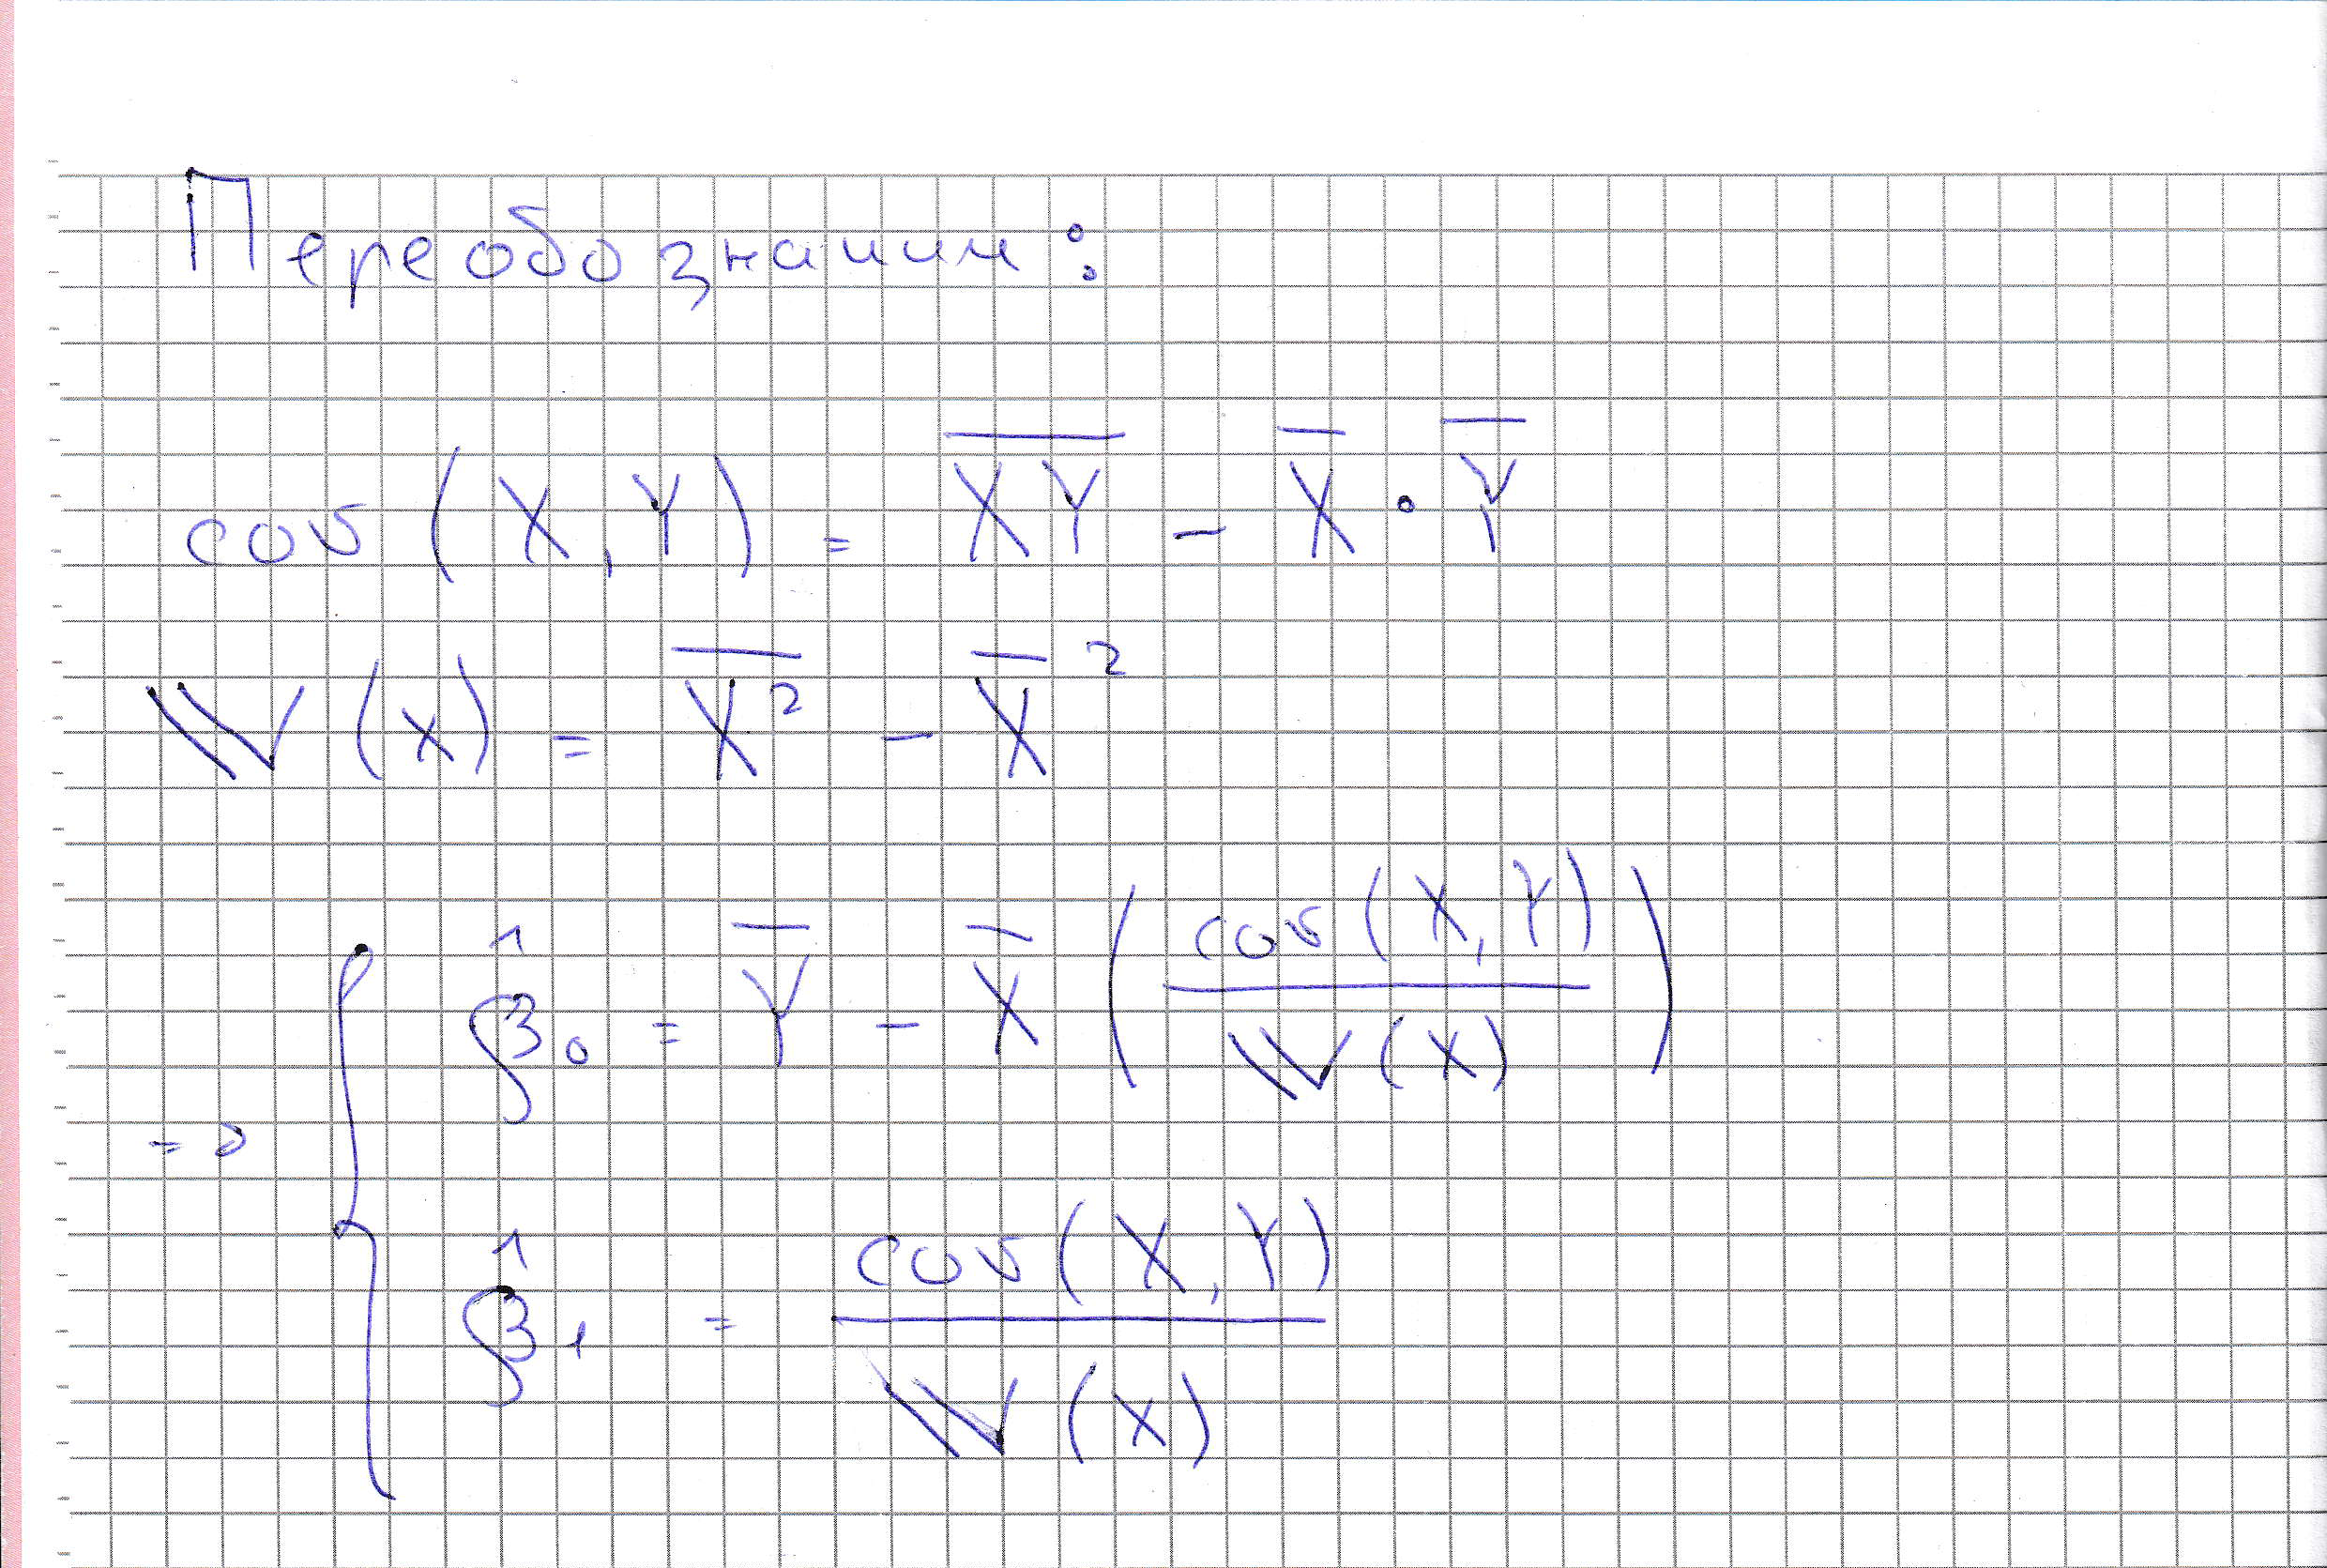 Переобозначим:
cov(X, Y) = \overline{XY} - \overline{X} \cdot \overline{Y}
\mathbb{V}(X) = \overline{X^2} - \overline{X}^2
=> { \hat{\beta}_0 = \overline{Y} - \overline{X} ( \frac{cov(X, Y)}{\mathbb{V}(X)} )
\hat{\beta}_1 = \frac{cov(X, Y)}{\mathbb{V}(X)}